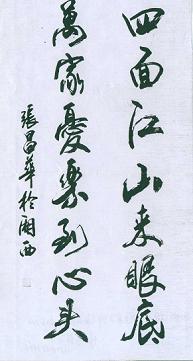 四面江山来眼底
萬家憂樂到心头
張昌華於湘西